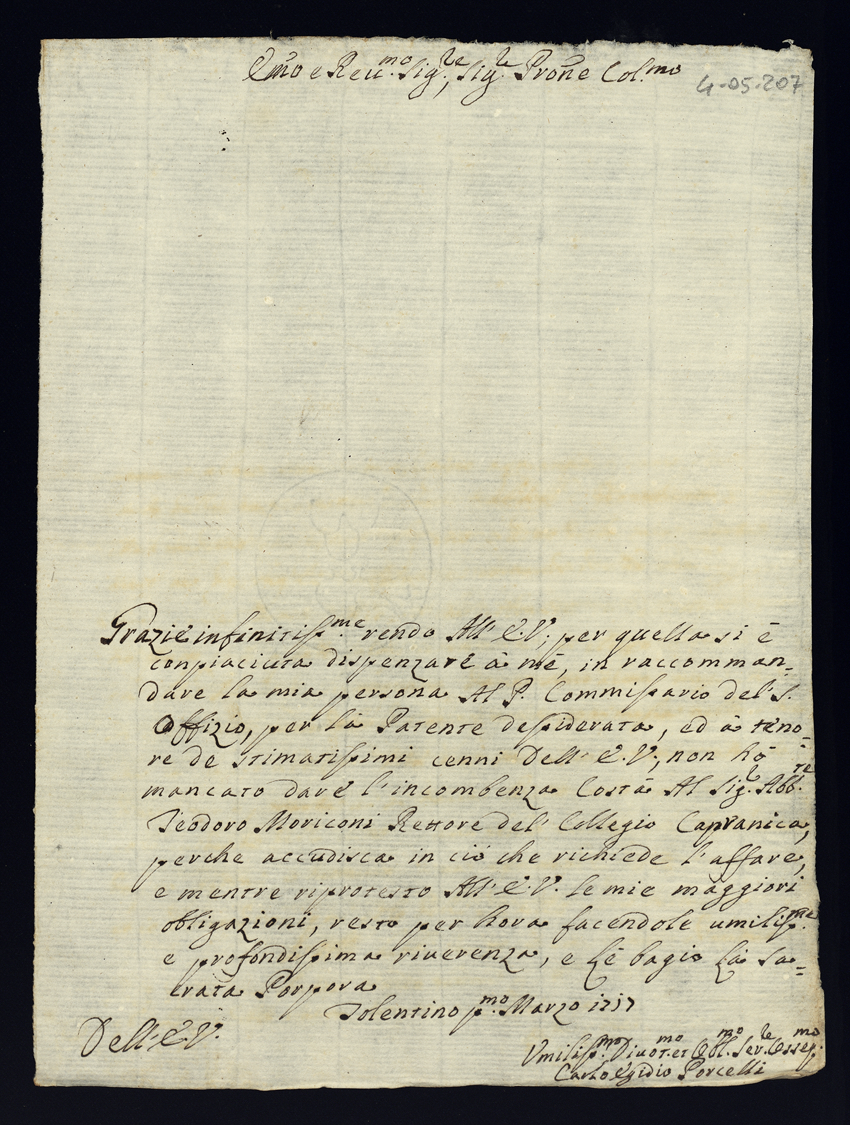 Em̃o e Reu.mo Sig.re, Sig.re Prоñe Col.mo
4-05-207
Grazie infinitiss.me rendo All' E.V., per quella si è
conpiaciuta dispenzare à mè, in raccomman-
dare la mia persona Al P. Commissario del' S.
Offizio, per la Patente desiderata, ed à teno-
re de stimatissimi cenni Dell' E.V., non hò
mancato dare l'incombenza Costà Al Sig.e Abb.te
Teodoro Moriconi Rettore del' Collegio Capranica,
perche accudisca in ciò che richiede l'affare,
e mentre riprotesto All' E.V. le mie maggiori
obligazioni, resto per hora facendole umiliss.me
e profondissima riuerenza, e lè bagio la Sa-
crata Porpora
Tolentino p.mo Marzo 1717
Dell' E.V.
Vmiliss.mo Diuot.mo et Obl.mo Ser.re Osseq.mo
Carlo Egidio Porcelli